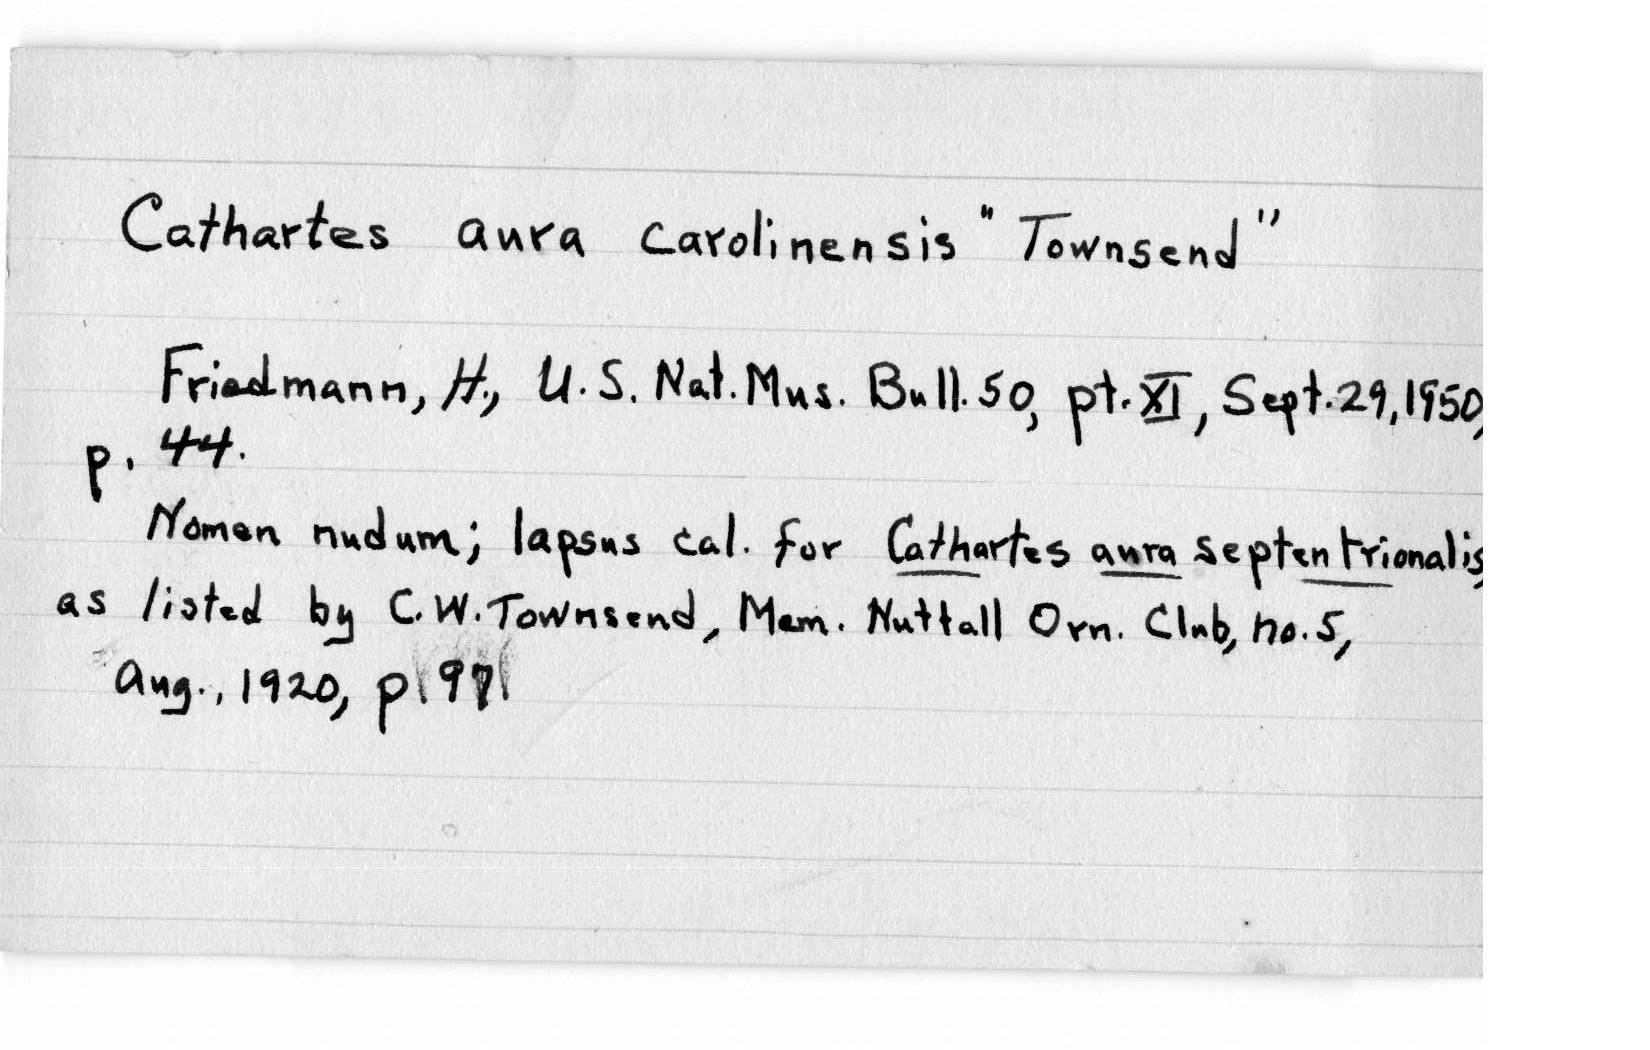 Cathartes aura carolinensis "Townsend"
Friedmann, H., U.S. Nat. Mus. Bull. 50, pt. XI, Sept. 29, 1950,
p. 44.
Nomen nudum; lapsus cal. for Cathartes aura septentrionalis
as listed by C. W. Townsend, Mem. Nuttall Orn. Club, no. 5,
Aug., 1920, p. 97